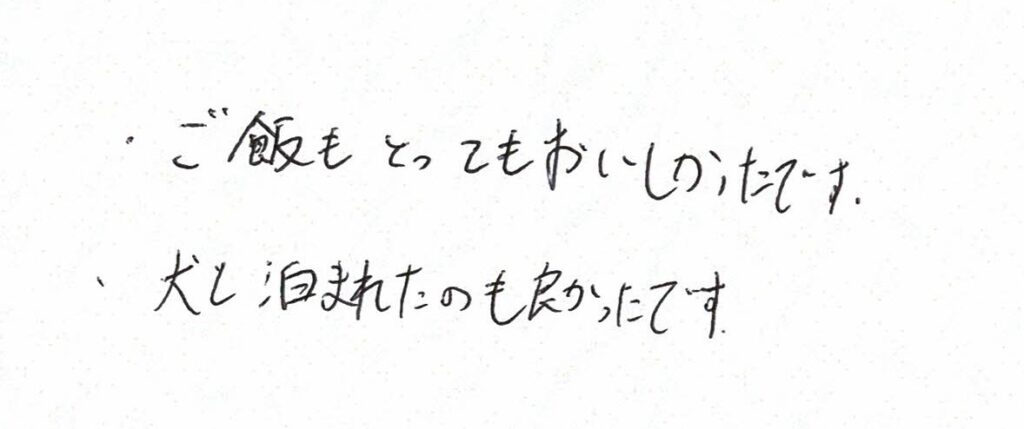 ・ご飯もとってもおいしかったです.
・犬と泊まれたのも良かったです.